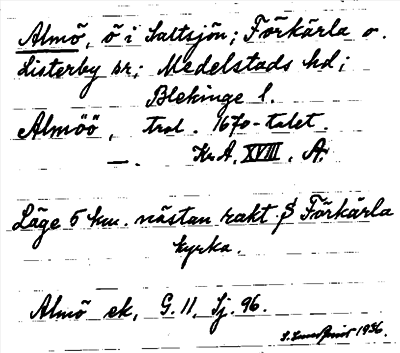 Almö, ö i Saltsjön; Förkärla o.
Listerby sr; Medelstads hd;
Blekinge l.
Almöö, trol. 1670-talet.
—. Kr.A. XVIII. A.
Läge 5 km. nästan rakt S Förkärla
kyrka.
Almö ek, G. 11, Sj. 96.
1936.